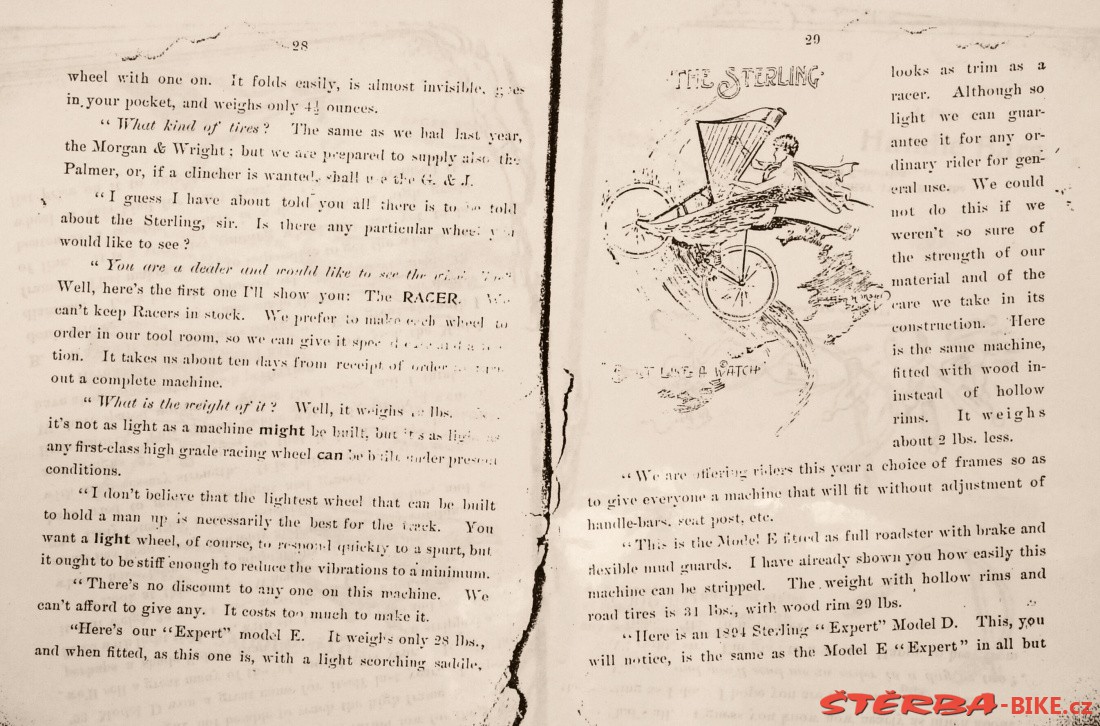 28
wheel with one on. It folds easily, is almost invisible, goes
in your pocket, and weighs only 4½ ounces.
"What kind of tires? The same as we had last year,
the Morgan & Wright; but we are prepared to supply also the
Palmer, or, if a clincher is wanted, shall use the G. & J.
"I guess I have about told you all there is to be told
about the Sterling, sir. Is there any particular wheel you
would like to see?
"You are a dealer and would like to see the
Well, here's the first one I'll show you: The RACER. We
can't keep Racers in stock. We prefer to make each wheel to
order in our tool room, so we can give it
tion. It takes us about ten days from receipt of order to turn
out a complete machine.
"What is the weight of it? Well, it weighs lbs.
it's not as light as a machine might be built, but it's as light as
any first-class high grade racing wheel can be built under present
conditions.
"I don't believe that the lightest wheel that can be built
to hold a man up is necessarily the best for the track. You
want a light wheel, of course, to respond quickly to a spurt, but
it ought to be stiff enough to reduce the vibrations to a minimum.
"There's no discount to any one on this machine. We
can't afford to give any. It costs too much to make it.
"Here's our "Expert" model E. It weighs only 28 lbs.,
and when fitted, as this one is, with a light scorching saddle,
29
THE STERLING
BUILT LIKE A WATCH
looks as trim as a
racer. Although so
light we can guar-
antee it for any or-
dinary rider for gen-
eral use. We could
not do this if we
weren't so sure of
the strength of our
material and of the
care we take in its
construction. Here
is the same machine,
fitted with wood in-
instead of hollow
rims. It weighs
about 2 lbs. less.
"We are offering riders this year a choice of frames so as
to give everyone a machine that will fit without adjustment of
handle-bars, seat post, etc.
"This is the Model E fitted as full roadster with brake and
flexible mud guards. I have already shown you how easily this
machine can be stripped. The weight with hollow rims and
road tires is 31 lbs., with wood rim 29 lbs.
"Here is an 1894 Sterling "Expert" Model D. This, you
will notice, is the same as the Model E "Expert" in all but
ŠTĚRBA-BIKE.cz